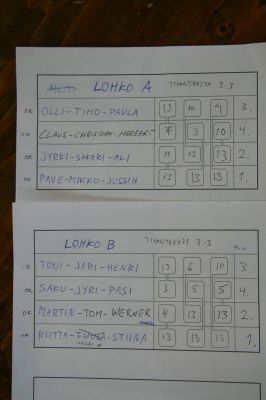 LOHKO A
3-3
OK OLLI-TIMO-PAULA 13 10 9 3.
OK CLAUS-CHRISTIAN-HERBERT 7 3 10 4.
OK JYRKI-SAKARI-ALI 13 13 2.
OK PAVE-MIKKO-JUSSIH 13 13 13 1.
LOHKO B
3-3
OK TONI-JARI-HENRI 13 6 10 3.
OK SAKU-JYRI-PASI 3 5 5 4.
OK MARTIN-TOM-WERNER 4 13 13 2.
OK RIITTA- -STIINA 13 13 13 1.
JUSSI H